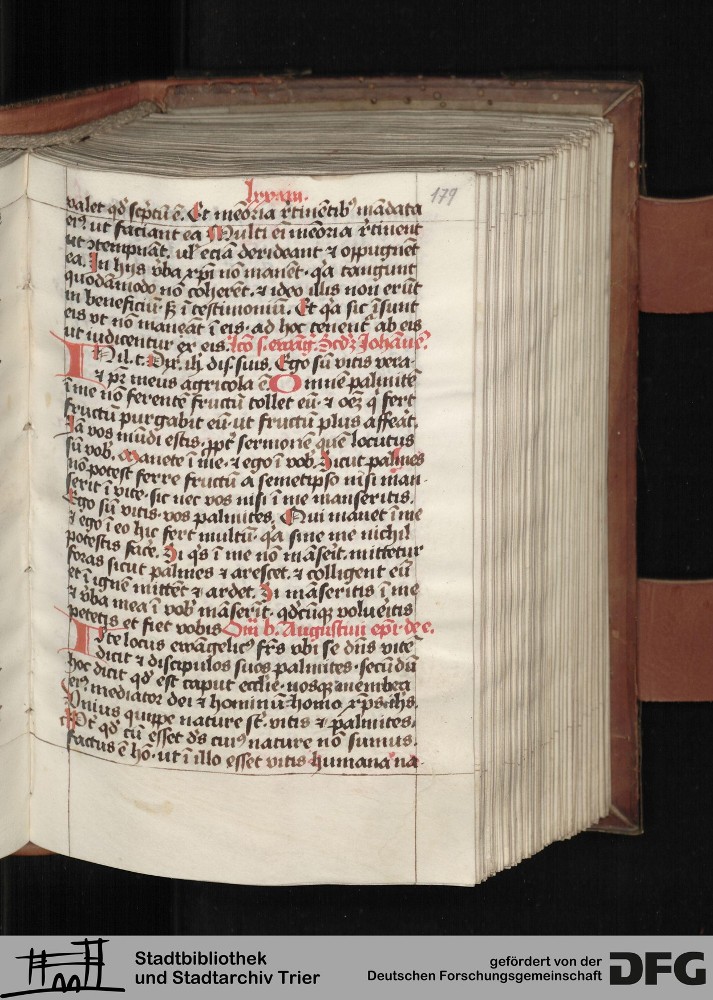 lxxviii.
179
valet qd̓ scp̄tū ē. Et meōria rͥtinētib9 mādata
ei9 ut faciant ea Multi ei meōria rͥtinent
ut ɔtempnāt. ul̓ eciā derideant ⁊ oppugnēt
ea. In hijs v̓ba xp̄i nō manēt. q̓a tangunt
quodāmodo nō coherēt. ⁊ ideo illis non erūt
in beneficiū. ꜱꝫ ī testimoniū. Et q̓a sic īsunt
eis vt nō maneāt ī eis. ad hoc tenent̓ ab eis
ut iudicentur ex eis. lc̄o s. ewāg. Scd̓ꝫ Johānē.
In il. t. Dix̓. ih̄. dis̄. suis. Ego sū vitis vera.
⁊ pr̄ meus agricola ē Omnē palmitē
ī me nō ferentē fructū tollet eū. ⁊ oēꝫ q̓ fert
fructū purgabit eū. ut fructū plus afferat.
Iā vos mūdi estis. ꝓpt̓ sermonē quē locutus
sū vob̓. Manete ī me. ⁊ ego ī vob̓. Sicut palmes
nō potest ferre fructū a semetipso nisi man-
serit ī vite. sic nec vos nisi ī me manseritis.
Ego sū vitis. vos palmites. Qui manet ī me
⁊ ego ī eo hic fert multū. q̓a sine me nichil
potestis fac̓e. Si q̓s ī me nō māserit. mittetur
foras sicut palmes ⁊ arescet. ⁊ colligent eū
et ī ignē mittēt ⁊ ardet. Si māseritis ī me
⁊ v̓ba mea ī vob̓ māserīt. qd̓cūqꝫ volueritis
petetis et fiet vobis Om̄. b. Augustini ep̄i. de e.
Iste locus ewāgelic9 frēs vbi se dn̄s vitē
dicit ⁊ discipulos suos palmites. secūdū
hoc dicit qd̓ est caput eccl̓ie. nosqꝫ membra
ei9 mediator dei ⁊ hominū homo xp̄s ih̄s.
Unius quippe nature st̄. vitis ⁊ palmites.
Propt̓ qd̓ cū esset ds̄ cui9 nature nō sumus.
factus ē hō. ut ī illo esset vitis humana na-
Stadtbibliothek
und Stadtarchiv Trier
gefördert von der
Deutschen Forschungsgemeinschaft
DFG